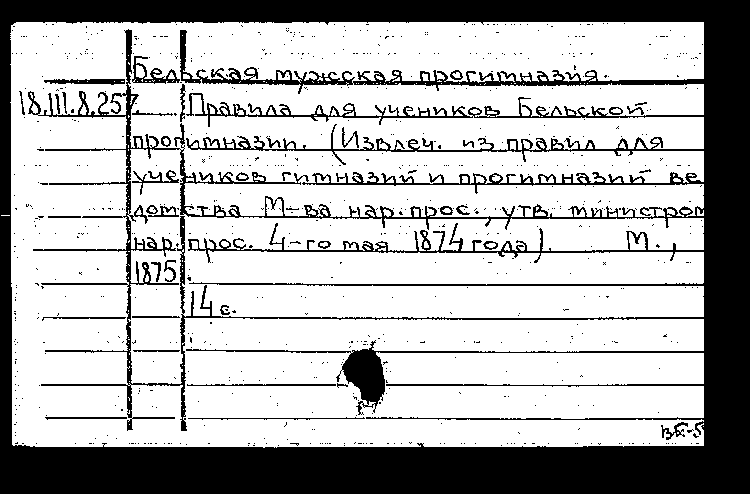 Бельская мужская прогимназия.
18.III.8.257. Правила для учеников Бельской
прогимназии. (Извлеч. из правил для
учеников гимназий и прогимназий ве
домства М-ва нар. прос., утв. министром
нар. прос. 4-го мая 1874 года). М.,
1875.
14 с.